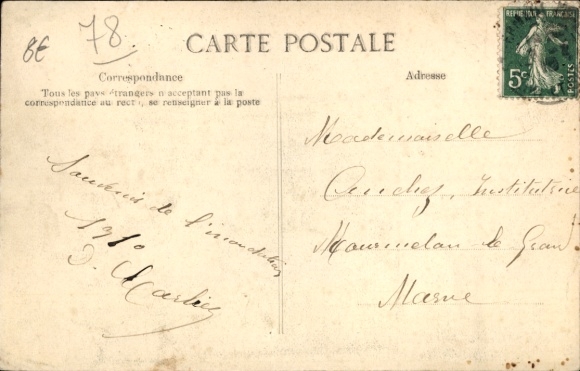 BE
78
CARTE POSTALE
Correspondance
Tous les pays étrangers n'acceptant pas la
correspondance au recto, se renseigner à la poste
Adresse
REPUBLIQUE FRANÇAISE
5c
POSTES
Souvenir de l'inondation
1910
D.
Mademoiselle
Institutrice
Mourmelon le Grand
Marne